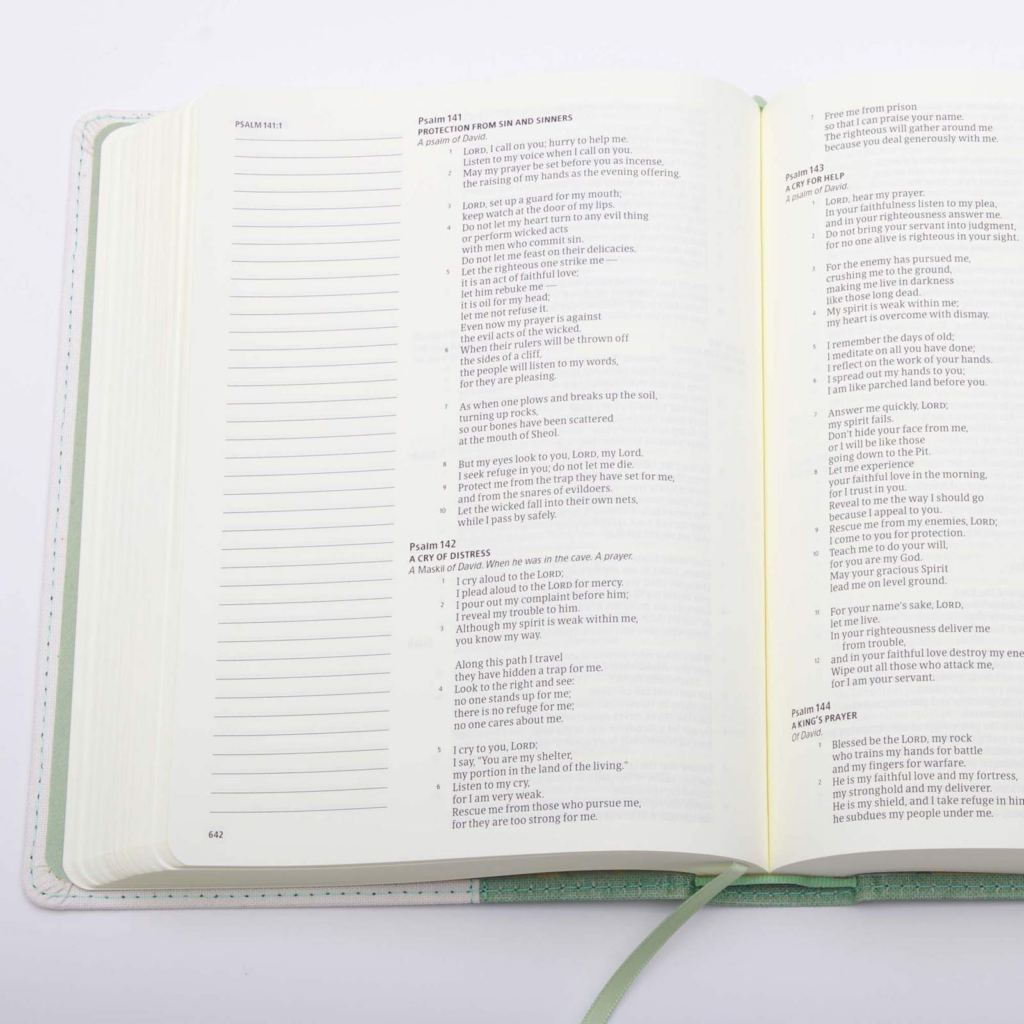 PSALM 141:1
Psalm 141
PROTECTION FROM SIN AND SINNERS
A psalm of David.
1 LORD, I call on you; hurry to help me.
Listen to my voice when I call on you.
2 May my prayer be set before you as incense,
the raising of my hands as the evening offering.
3 LORD, set up a guard for my mouth;
keep watch at the door of my lips.
4 Do not let my heart turn to any evil thing
or perform wicked acts
with men who commit sin.
Do not let me feast on their delicacies.
5 Let the righteous one strike me —
it is an act of faithful love;
let him rebuke me —
it is oil for my head;
let me not refuse it.
Even now my prayer is against
the evil acts of the wicked.
6 When their rulers will be thrown off
the sides of a cliff,
the people will listen to my words,
for they are pleasing.
7 As when one plows and breaks up the soil,
turning up rocks,
so our bones have been scattered
at the mouth of Sheol.
8 But my eyes look to you, LORD, my Lord.
I seek refuge in you; do not let me die.
9 Protect me from the trap they have set for me,
and from the snares of evildoers.
10 Let the wicked fall into their own nets,
while I pass by safely.
Psalm 142
A CRY OF DISTRESS
A Maskil of David. When he was in the cave. A prayer.
1 I cry aloud to the LORD;
I plead aloud to the LORD for mercy.
2 I pour out my complaint before him;
I reveal my trouble to him.
3 Although my spirit is weak within me,
you know my way.
Along this path I travel
they have hidden a trap for me.
4 Look to the right and see:
no one stands up for me;
there is no refuge for me;
no one cares about me.
5 I cry to you, LORD;
I say, “You are my shelter,
my portion in the land of the living.”
6 Listen to my cry,
for I am very weak.
Rescue me from those who pursue me,
for they are too strong for me.
642
7 Free me from prison
so that I can praise your name.
The righteous will gather around me
because you deal generously with me.
Psalm 143
A CRY FOR HELP
A psalm of David.
1 LORD, hear my prayer.
In your faithfulness listen to my plea,
and in your righteousness answer me.
2 Do not bring your servant into judgment,
for no one alive is righteous in your sight.
3 For the enemy has pursued me,
crushing me to the ground,
making me live in darkness
like those long dead.
4 My spirit is weak within me;
my heart is overcome with dismay.
5 I remember the days of old;
I meditate on all you have done;
I reflect on the work of your hands.
6 I spread out my hands to you;
I am like parched land before you.
7 Answer me quickly, LORD;
my spirit fails.
Don't hide your face from me,
or I will be like those
going down to the Pit.
8 Let me experience
your faithful love in the morning,
for I trust in you.
Reveal to me the way I should go
because I appeal to you.
9 Rescue me from my enemies, LORD;
I come to you for protection.
10 Teach me to do your will,
for you are my God.
May your gracious Spirit
lead me on level ground.
11 For your name's sake, LORD,
let me live.
In your righteousness deliver me
from trouble,
12 and in your faithful love destroy my ene
Wipe out all those who attack me,
for I am your servant.
Psalm 144
A KING'S PRAYER
Of David.
1 Blessed be the LORD, my rock
who trains my hands for battle
and my fingers for warfare.
2 He is my faithful love and my fortress,
my stronghold and my deliverer.
He is my shield, and I take refuge in him
he subdues my people under me.